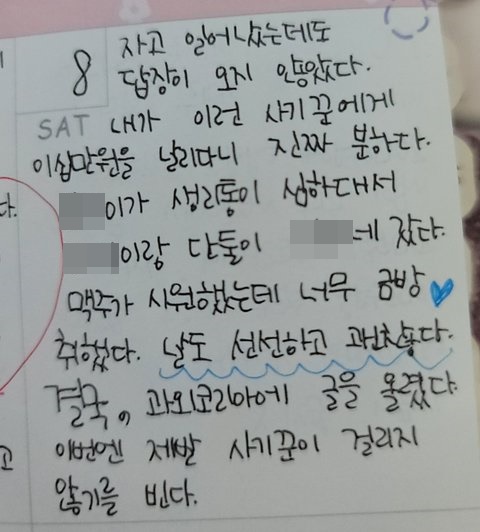 8
SAT
자고 일어났는데도
답장이 오지 않았다.
내가 이런 사기꾼에게
이십만원을 날리다니 진짜 분하다.
이가 생리통이 심하대서
이랑 단둘이 네 갔다.
맥주가 시원했는데 너무 금방
취했다. 날도 선선하고 괜찮다.
결국, 과외코리아에 글을 올렸다.
이번엔 제발 사기꾼이 걸리지
않기를 빈다.
다.
고